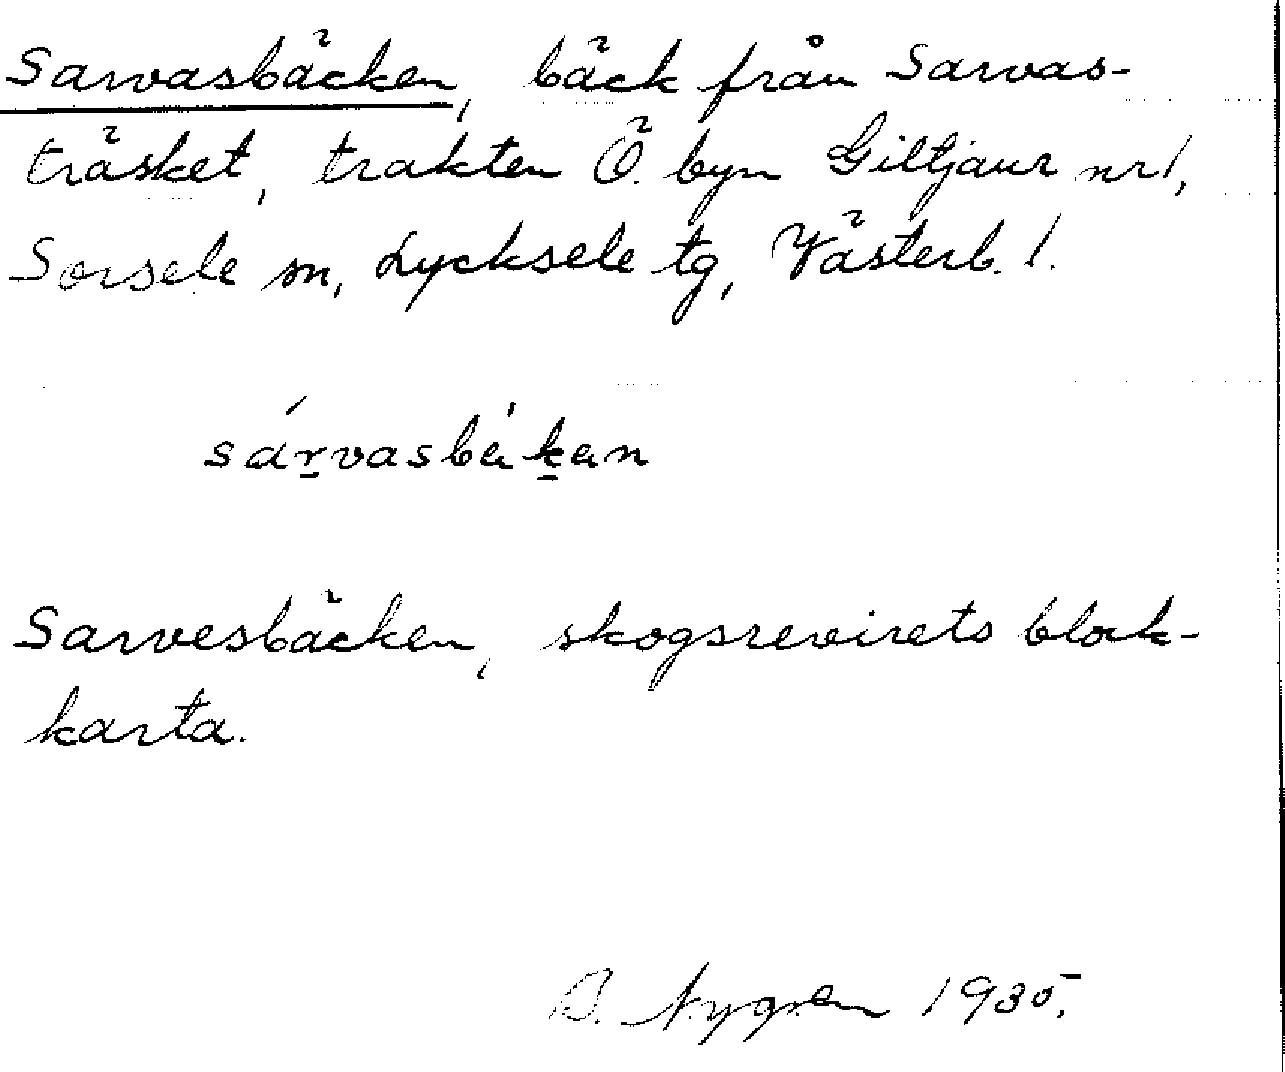 Sarvasbäcken, bäck från Sarvas-
träsket, trakten Ö. byn Giltjaur nr 1,
Sorsele sn, Lycksele tg, Västerb. l.
sárvasbäkan
Sarvesbäcken, skogsrevirets block-
karta.
B. Nygren 1935.